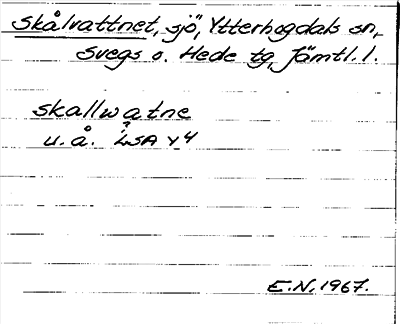 Skålvattnet, sjö, Ytterhogdals sn,
Svegs o. Hede tg, Jämtl. l.
skallwatne
u.å. LSA Y4
E.N. 1967.